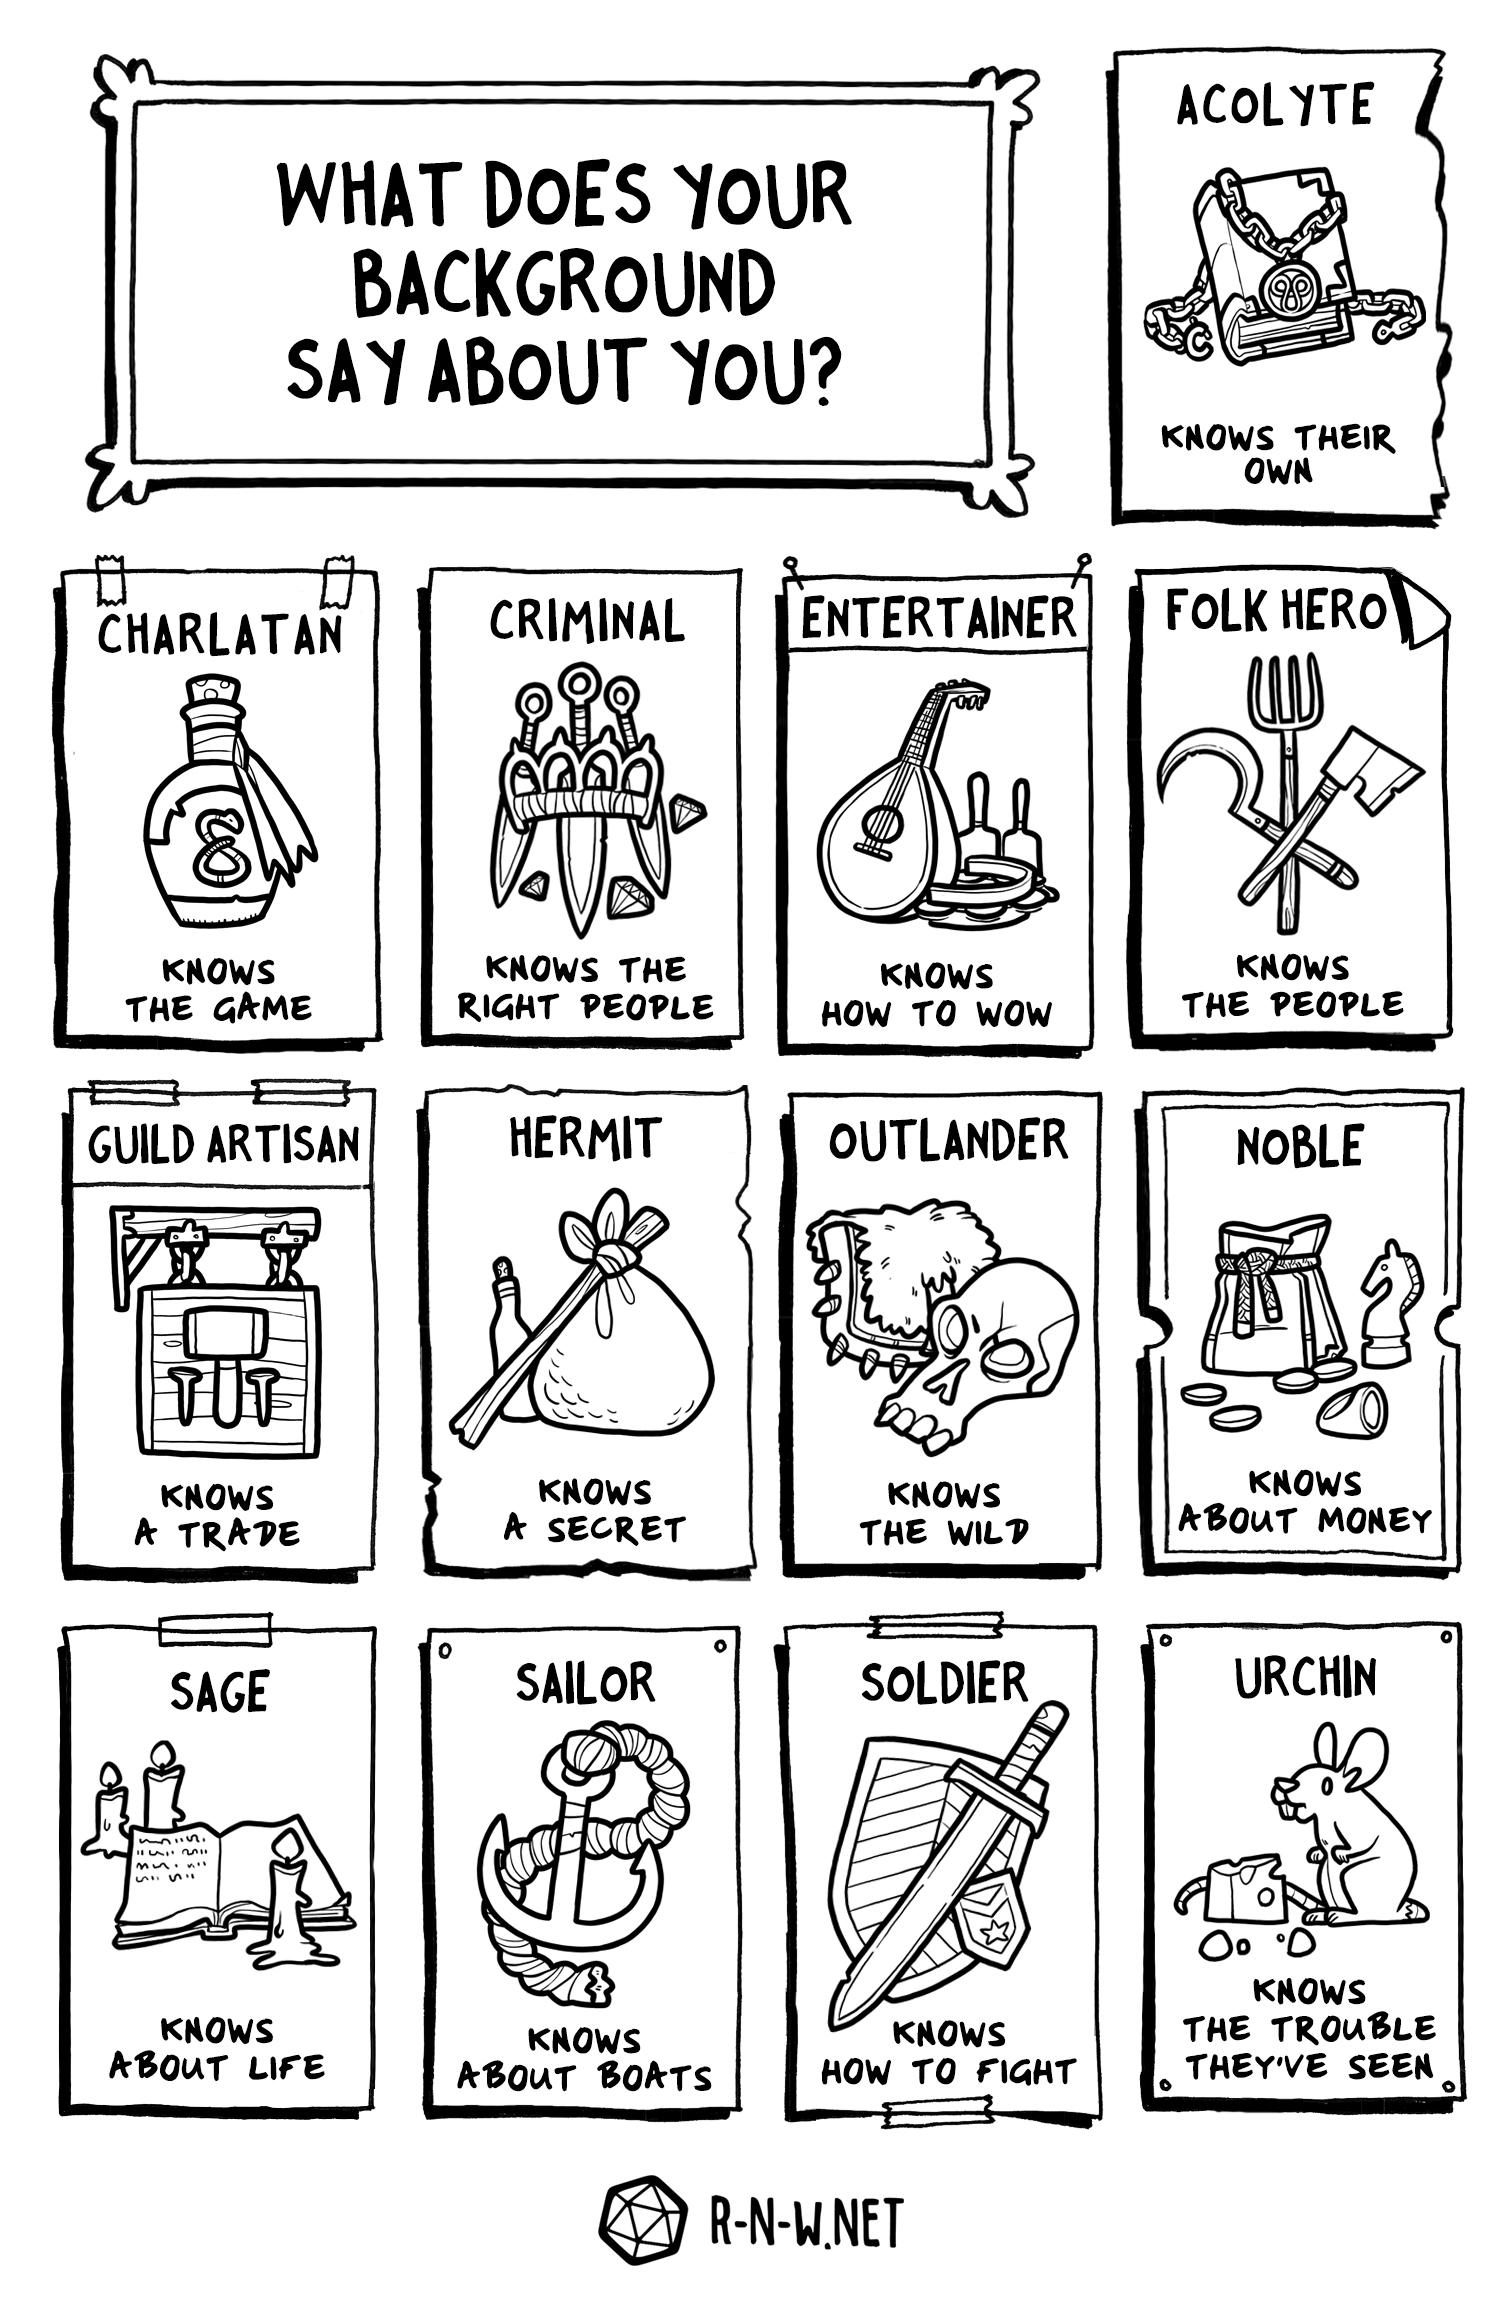 WHAT DOES YOUR
BACKGROUND
SAY ABOUT YOU?
ACOLYTE
KNOWS THEIR
OWN
CHARLATAN
KNOWS
THE GAME
CRIMINAL
KNOWS THE
RIGHT PEOPLE
ENTERTAINER
KNOWS
HOW TO WOW
FOLK HERO
KNOWS
THE PEOPLE
GUILD ARTISAN
KNOWS
A TRADE
HERMIT
KNOWS
A SECRET
OUTLANDER
KNOWS
THE WILD
NOBLE
KNOWS
ABOUT MONEY
SAGE
KNOWS
ABOUT LIFE
SAILOR
KNOWS
ABOUT BOATS
SOLDIER
KNOWS
HOW TO FIGHT
URCHIN
KNOWS
THE TROUBLE
THEY'VE SEEN
R-N-W.NET